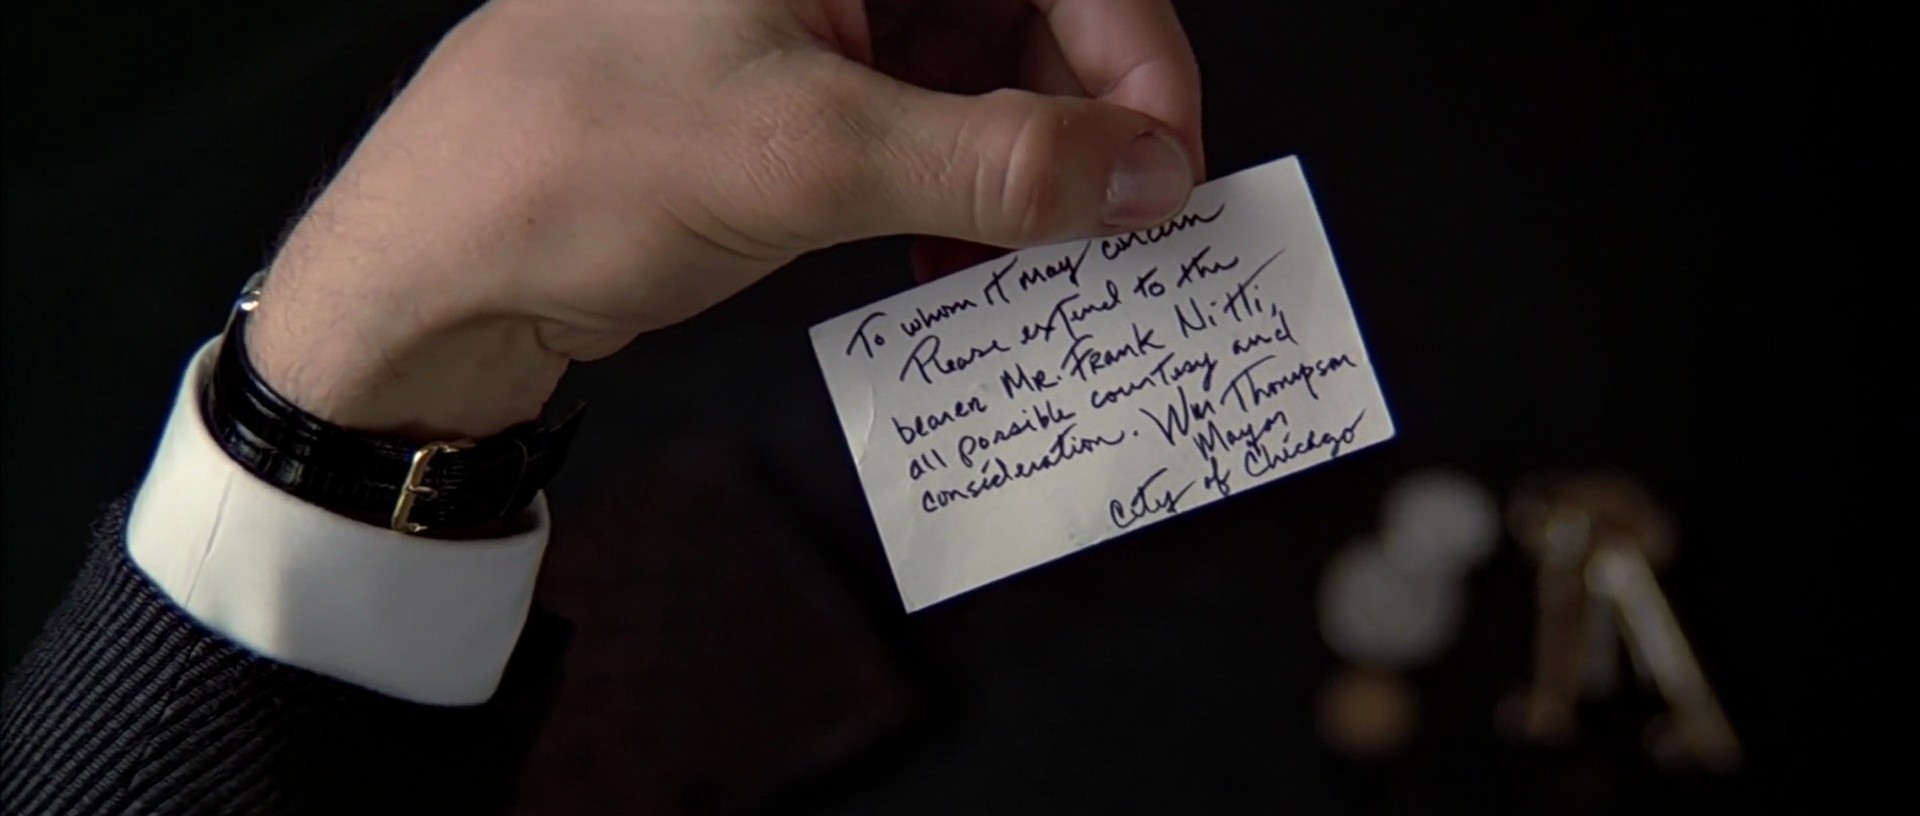 To whom it may concern
Please extend to the
bearer Mr. Frank Nitti,
all possible courtesy and
consideration. Wm Thompson
Mayor
City of Chicago